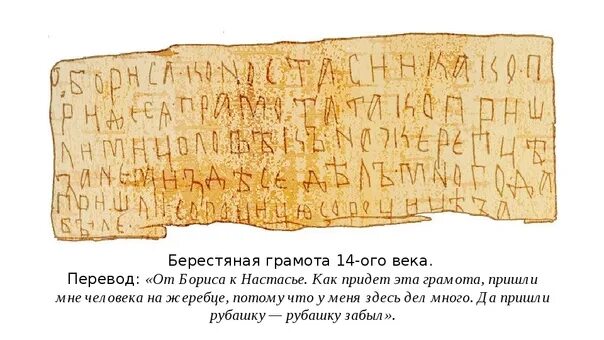 ѾБОРИСА·КОNОСТАСИИКАКО·П
РИДЕСАГРАМОТАТАКОПРИШ
ЛИМИЦОЛОВѢКЪNОЖЕРЕПЦѢ
ЗАNЕМИЗДѢСЕДѢЛЪМNОГОДА
ПРИШЛИСОРОЦИЦЮСОРОЦИЦѢЗА
БЫЛЕ
Берестяная грамота 14-ого века.
Перевод: «От Бориса к Настасье. Как придет эта грамота, пришли
мне человека на жеребце, потому что у меня здесь дел много. Да пришли
рубашку — рубашку забыл».